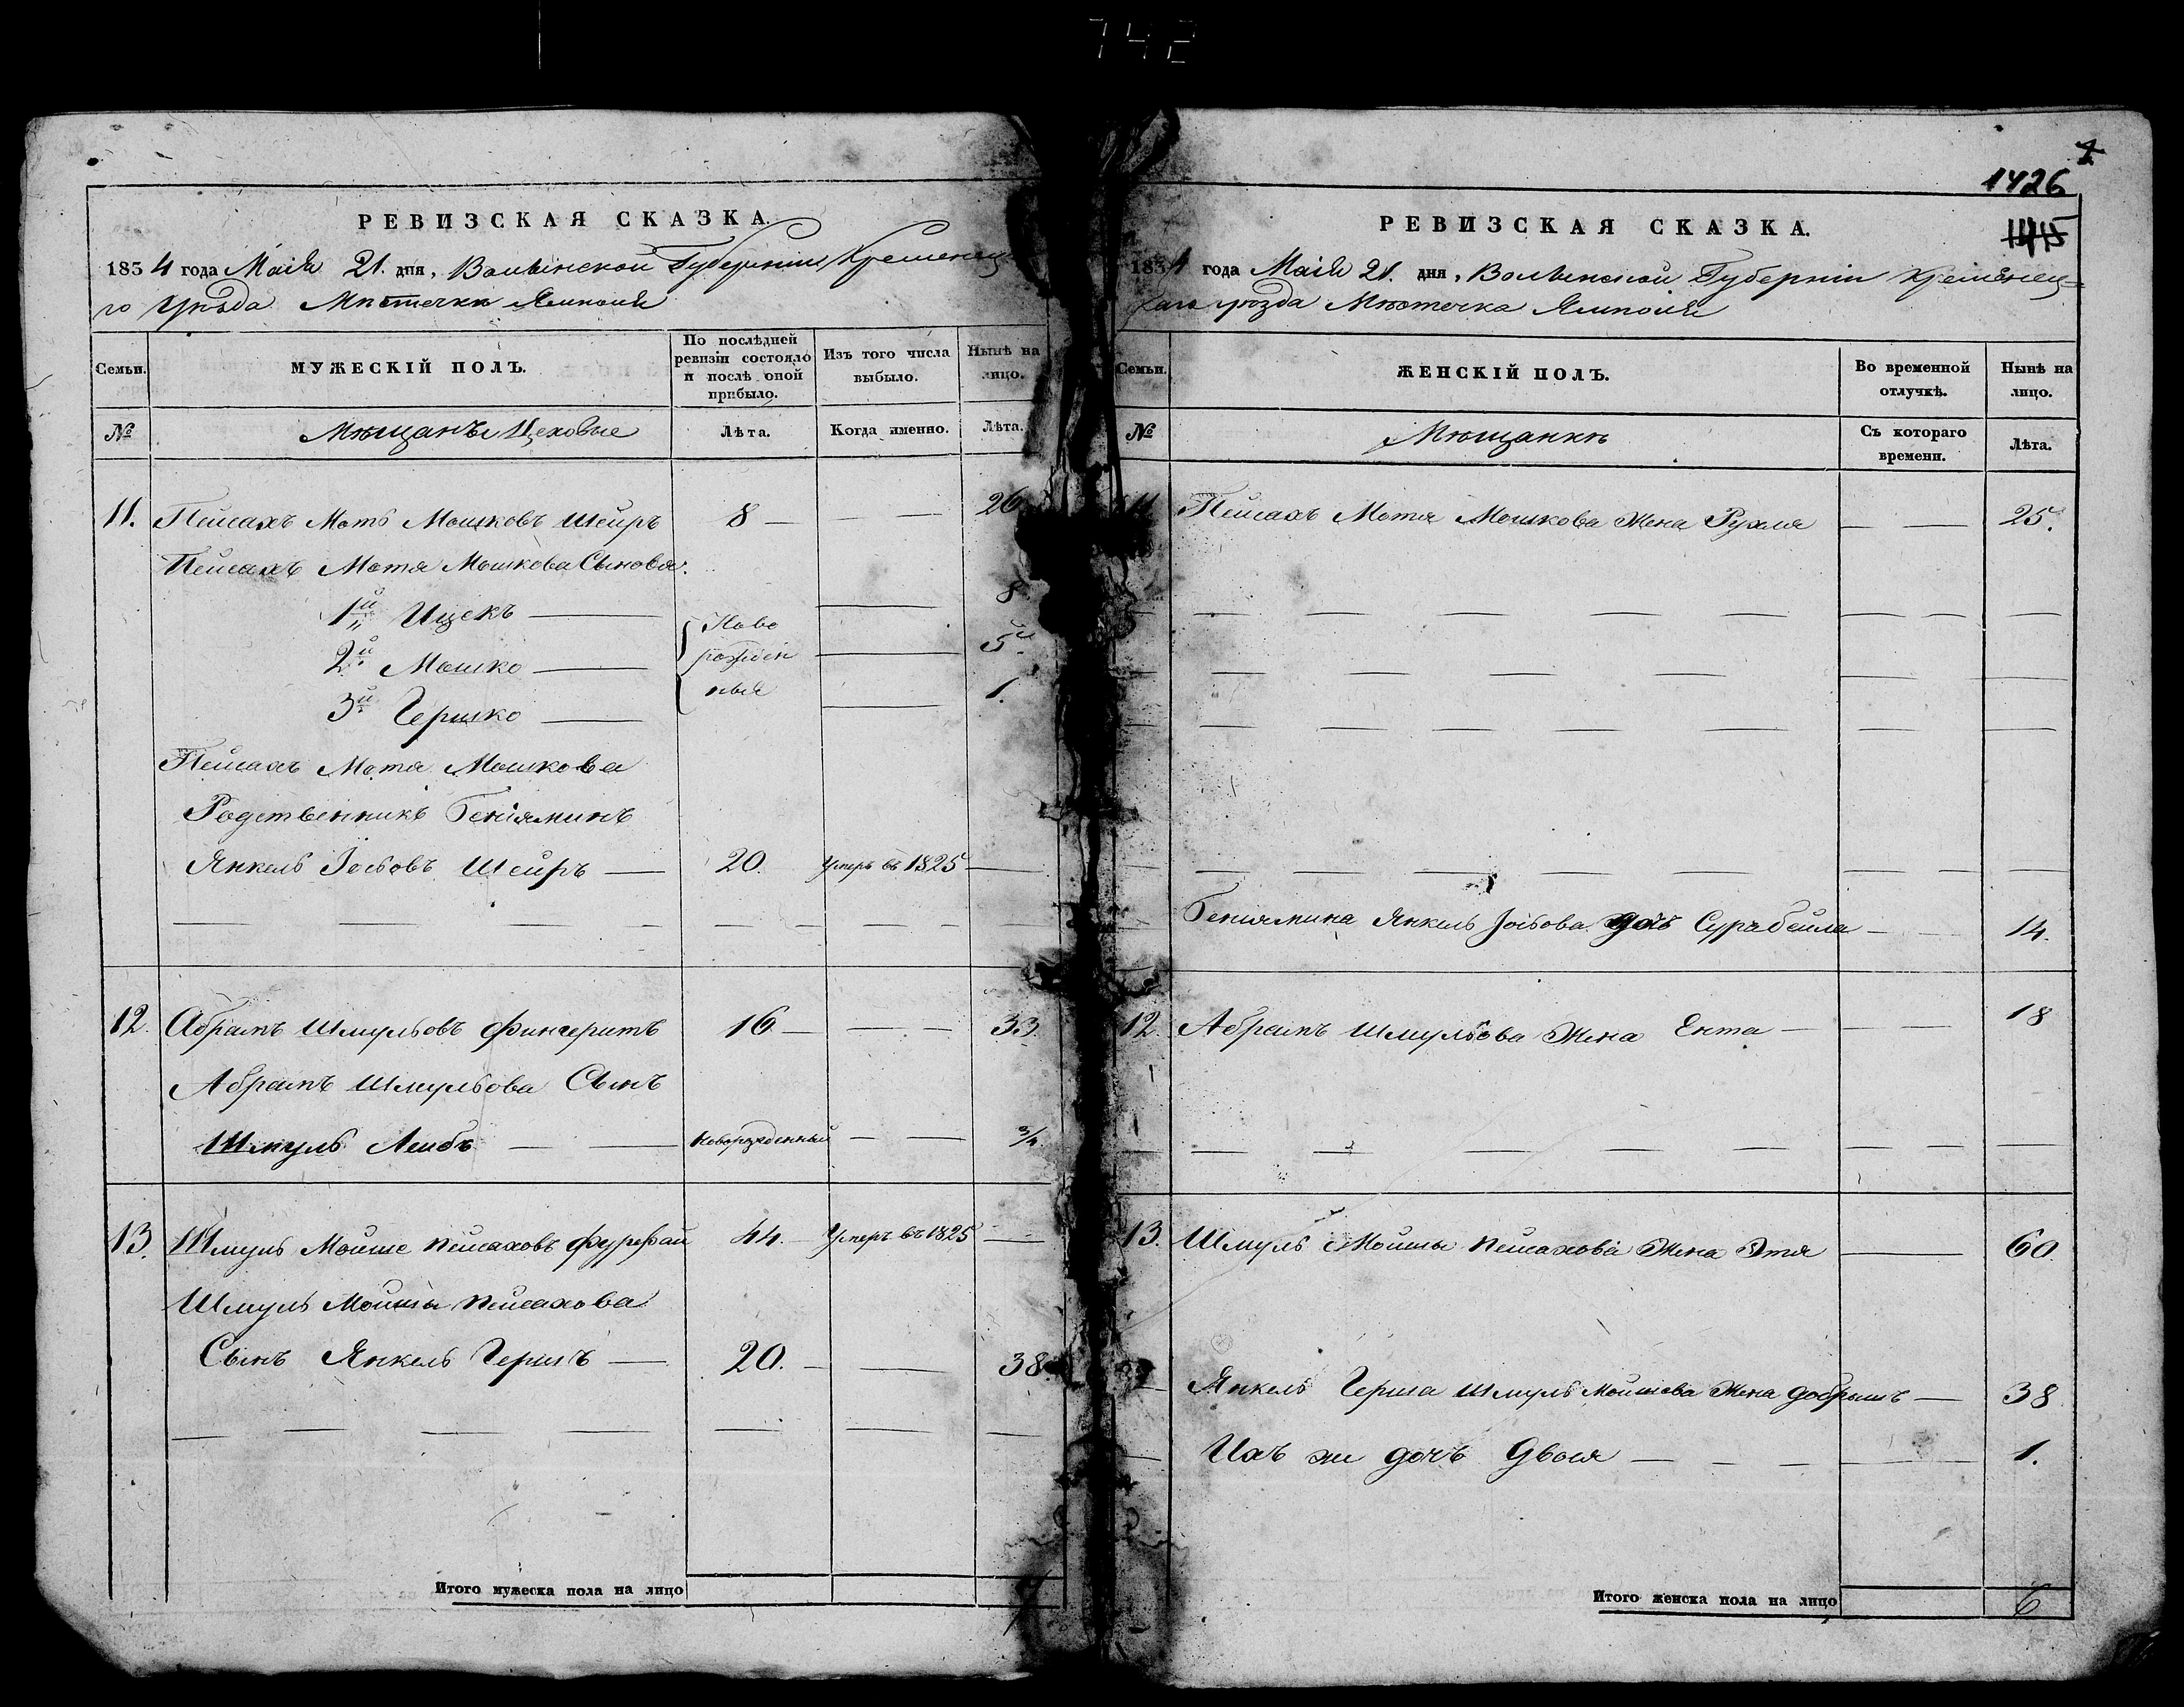 742
РЕВИЗСКАЯ СКАЗКА.
1834 года Маія 21. дня, Волынской Губерніи Кременец
го Уѣзда Мѣстечка Ямполя
Семьи.
МУЖЕСКІЙ ПОЛЪ.
По послѣдней ревизіи состояло и послѣ оной прибыло.
Изъ того числа выбыло.
Нынѣ на лицо.
№
Мѣщанѣ Цеховые
Лѣта.
Когда именно.
Лѣта.
11. Пейсахъ Моть Мошковъ Шейръ 8 — — — 26
Пейсахъ Мотя Мошкова Сыновя:
1й Ицекъ — 8
2й Мошко — Ново — 5
3й Гершко — рожден ныя — 1.
Пейсахъ Мотя Мошкова
Родственникъ Беніяминъ
Янкель Іосьовъ Шейръ — 20. Умеръ въ 1825 —
12. Абрамъ Шмульовъ Фингеритъ 16 — — — 33.
Абрамъ Шмульова Сынъ
Шмуль Лейбъ — — Новорожденный — — 3/4
13. Шмуль Мойше Пейсаховъ 44. Умеръ въ 1825 —
Шмуль Мойши Пейсахова
Сынъ Янкель Гершъ — 20. — — 38
Итого мужеска пола на лицо 7
1426
1415
РЕВИЗСКАЯ СКАЗКА.
1834 года Маія 21. дня, Волынской Губерніи Кременец=
каго уѣзда Мѣстечка Ямполя
Семьи.
ЖЕНСКІЙ ПОЛЪ.
Во временной отлучкѣ.
Нынѣ на лицо.
№
Мѣщанкѣ
Съ котораго времени.
Лѣта.
11 Пейсахъ Мотя Мошкова Жена Рухля — — 25.
Беніямина Янкель Іосьова дочь Суръбейла — — 14.
12. Абрамъ Шмульова Жена Ента — — — 18
13. Шмуль Мойши Пейсахова Жена Этя — 60
Янкель Герша Шмуль Мойшова Жена Добрышъ — 38
Ихъ же дочъ Двося — — — — 1.
Итого женска пола на лицо 6